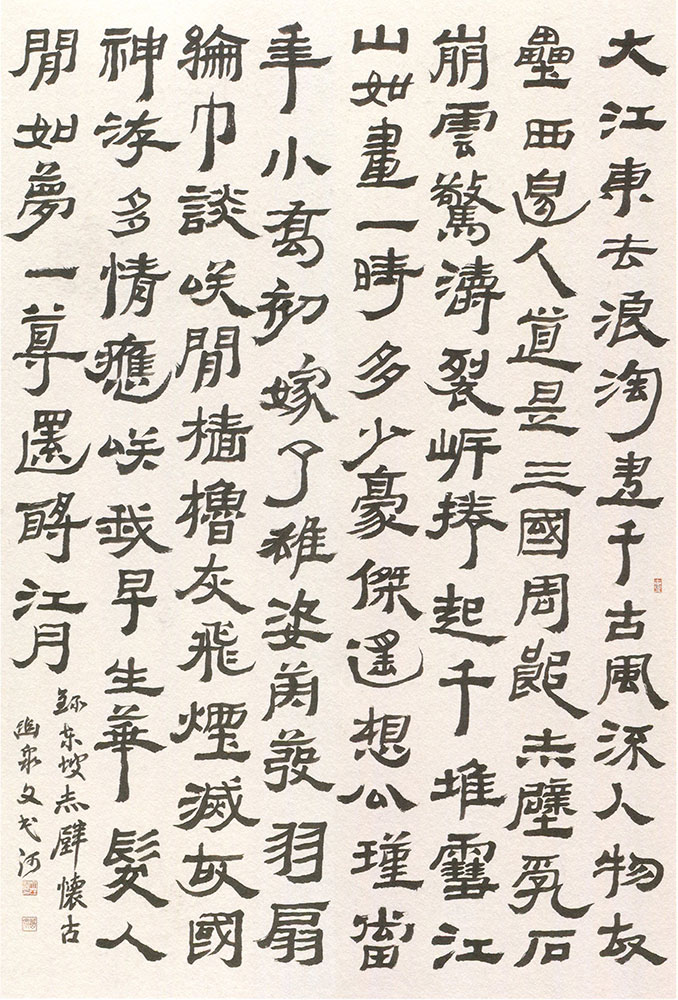 大江東去浪淘盡千古風流人物故
壘西邊人道是三國周郎赤壁亂石
崩雲驚濤裂岸捲起千堆雪江
山如畫一時多少豪傑遥想公瑾當
年小喬初嫁了雄姿英發羽扇
綸巾談咲閒檣櫓灰飛煙滅故國
神游多情應咲我早生華髮人
閒如夢一尊還酹江月
錄東坡赤壁懷古